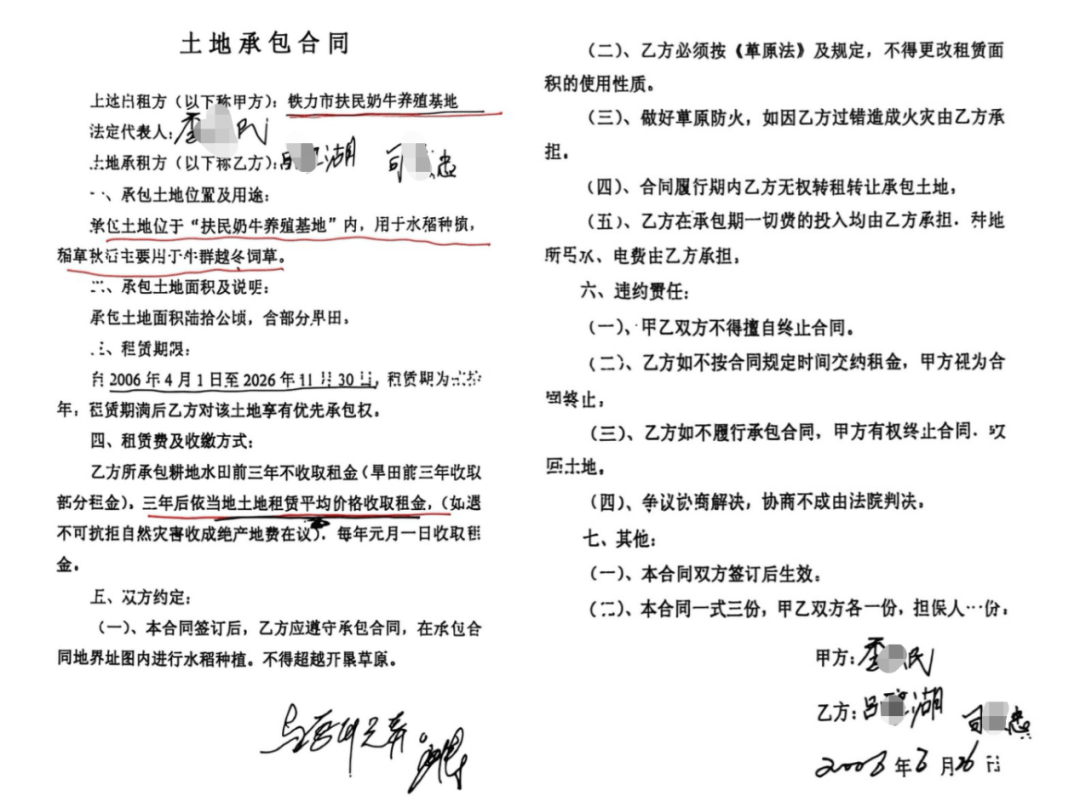 土地承包合同
上述出租方（以下称甲方）：铁力市扶民奶牛养殖基地
法定代表人：李 民
土地承租方（以下称乙方）：吕 湖 司 忠
一、承包土地位置及用途：
承包土地位于“扶民奶牛养殖基地”内，用于水稻种植，
稻草秋后主要用于牛群越冬饲草。
二、承包土地面积及说明：
承包土地面积陆拾公顷，含部分旱田，
三、租赁期限：
自2006年4月1日至2026年11月30日，租赁期为贰拾
年，租赁期满后乙方对该土地享有优先承包权。
四、租赁费及收缴方式：
乙方所承包耕地水田前三年不收取租金（旱田前三年收取
部分租金），三年后依当地土地租赁平均价格收取租金，（如遇
不可抗拒自然灾害收成绝产地费在议）．每年元月一日收取租
金。
五、双方约定：
（一）、本合同签订后，乙方应遵守承包合同，在承包合
同地界址图内进行水稻种植。不得超越开垦草原。
（二）、乙方必须按《草原法》及规定，不得更改租赁面
积的使用性质。
（三）、做好草原防火，如因乙方过错造成火灾由乙方承
担。
（四）、合同履行期内乙方无权转租转让承包土地，
（五）、乙方在承包期一切费的投入均由乙方承担．种地
所用水、电费由乙方承担，
六、违约责任：
（一）、甲乙双方不得擅自终止合同。
（二）、乙方如不按合同规定时间交纳租金，甲方视为合
同终止；
（三）、乙方如不履行承包合同，甲方有权终止合同．收
回土地。
（四）、争议协商解决，协商不成由法院判决。
七、其他：
（一）、本合同双方签订后生效。
（二）、本合同一式三份，甲乙双方各一份，担保人一份；
甲方：李 民
乙方：吕 湖 司 忠
年 月26日